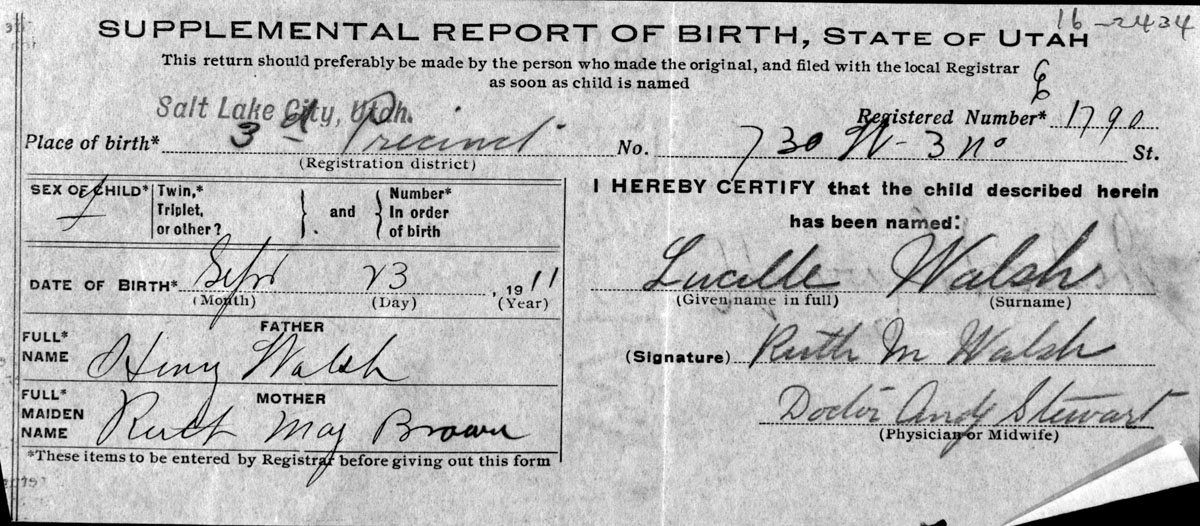 16-2434
SUPPLEMENTAL REPORT OF BIRTH, STATE OF UTAH
This return should preferably be made by the person who made the original, and filed with the local Registrar
as soon as child is named
Salt Lake City, Utah.
Registered Number* 1790
Place of birth* 3d Precinct No. 730 W-3 no St.
(Registration district)
SEX OF CHILD* f
Twin,*
Triplet,
or other?
and
Number*
In order
of birth
I HEREBY CERTIFY that the child described herein
has been named:
Lucille Walsh
(Given name in full) (Surname)
DATE OF BIRTH* Sept 23, 1911
(Month) (Day) (Year)
FATHER
FULL*
NAME
Henry Walsh
(Signature) Ruth M Walsh
MOTHER
FULL*
MAIDEN
NAME
Ruth May Brown
Doctor Andy Stewart
(Physician or Midwife)
*These items to be entered by Registrar before giving out this form